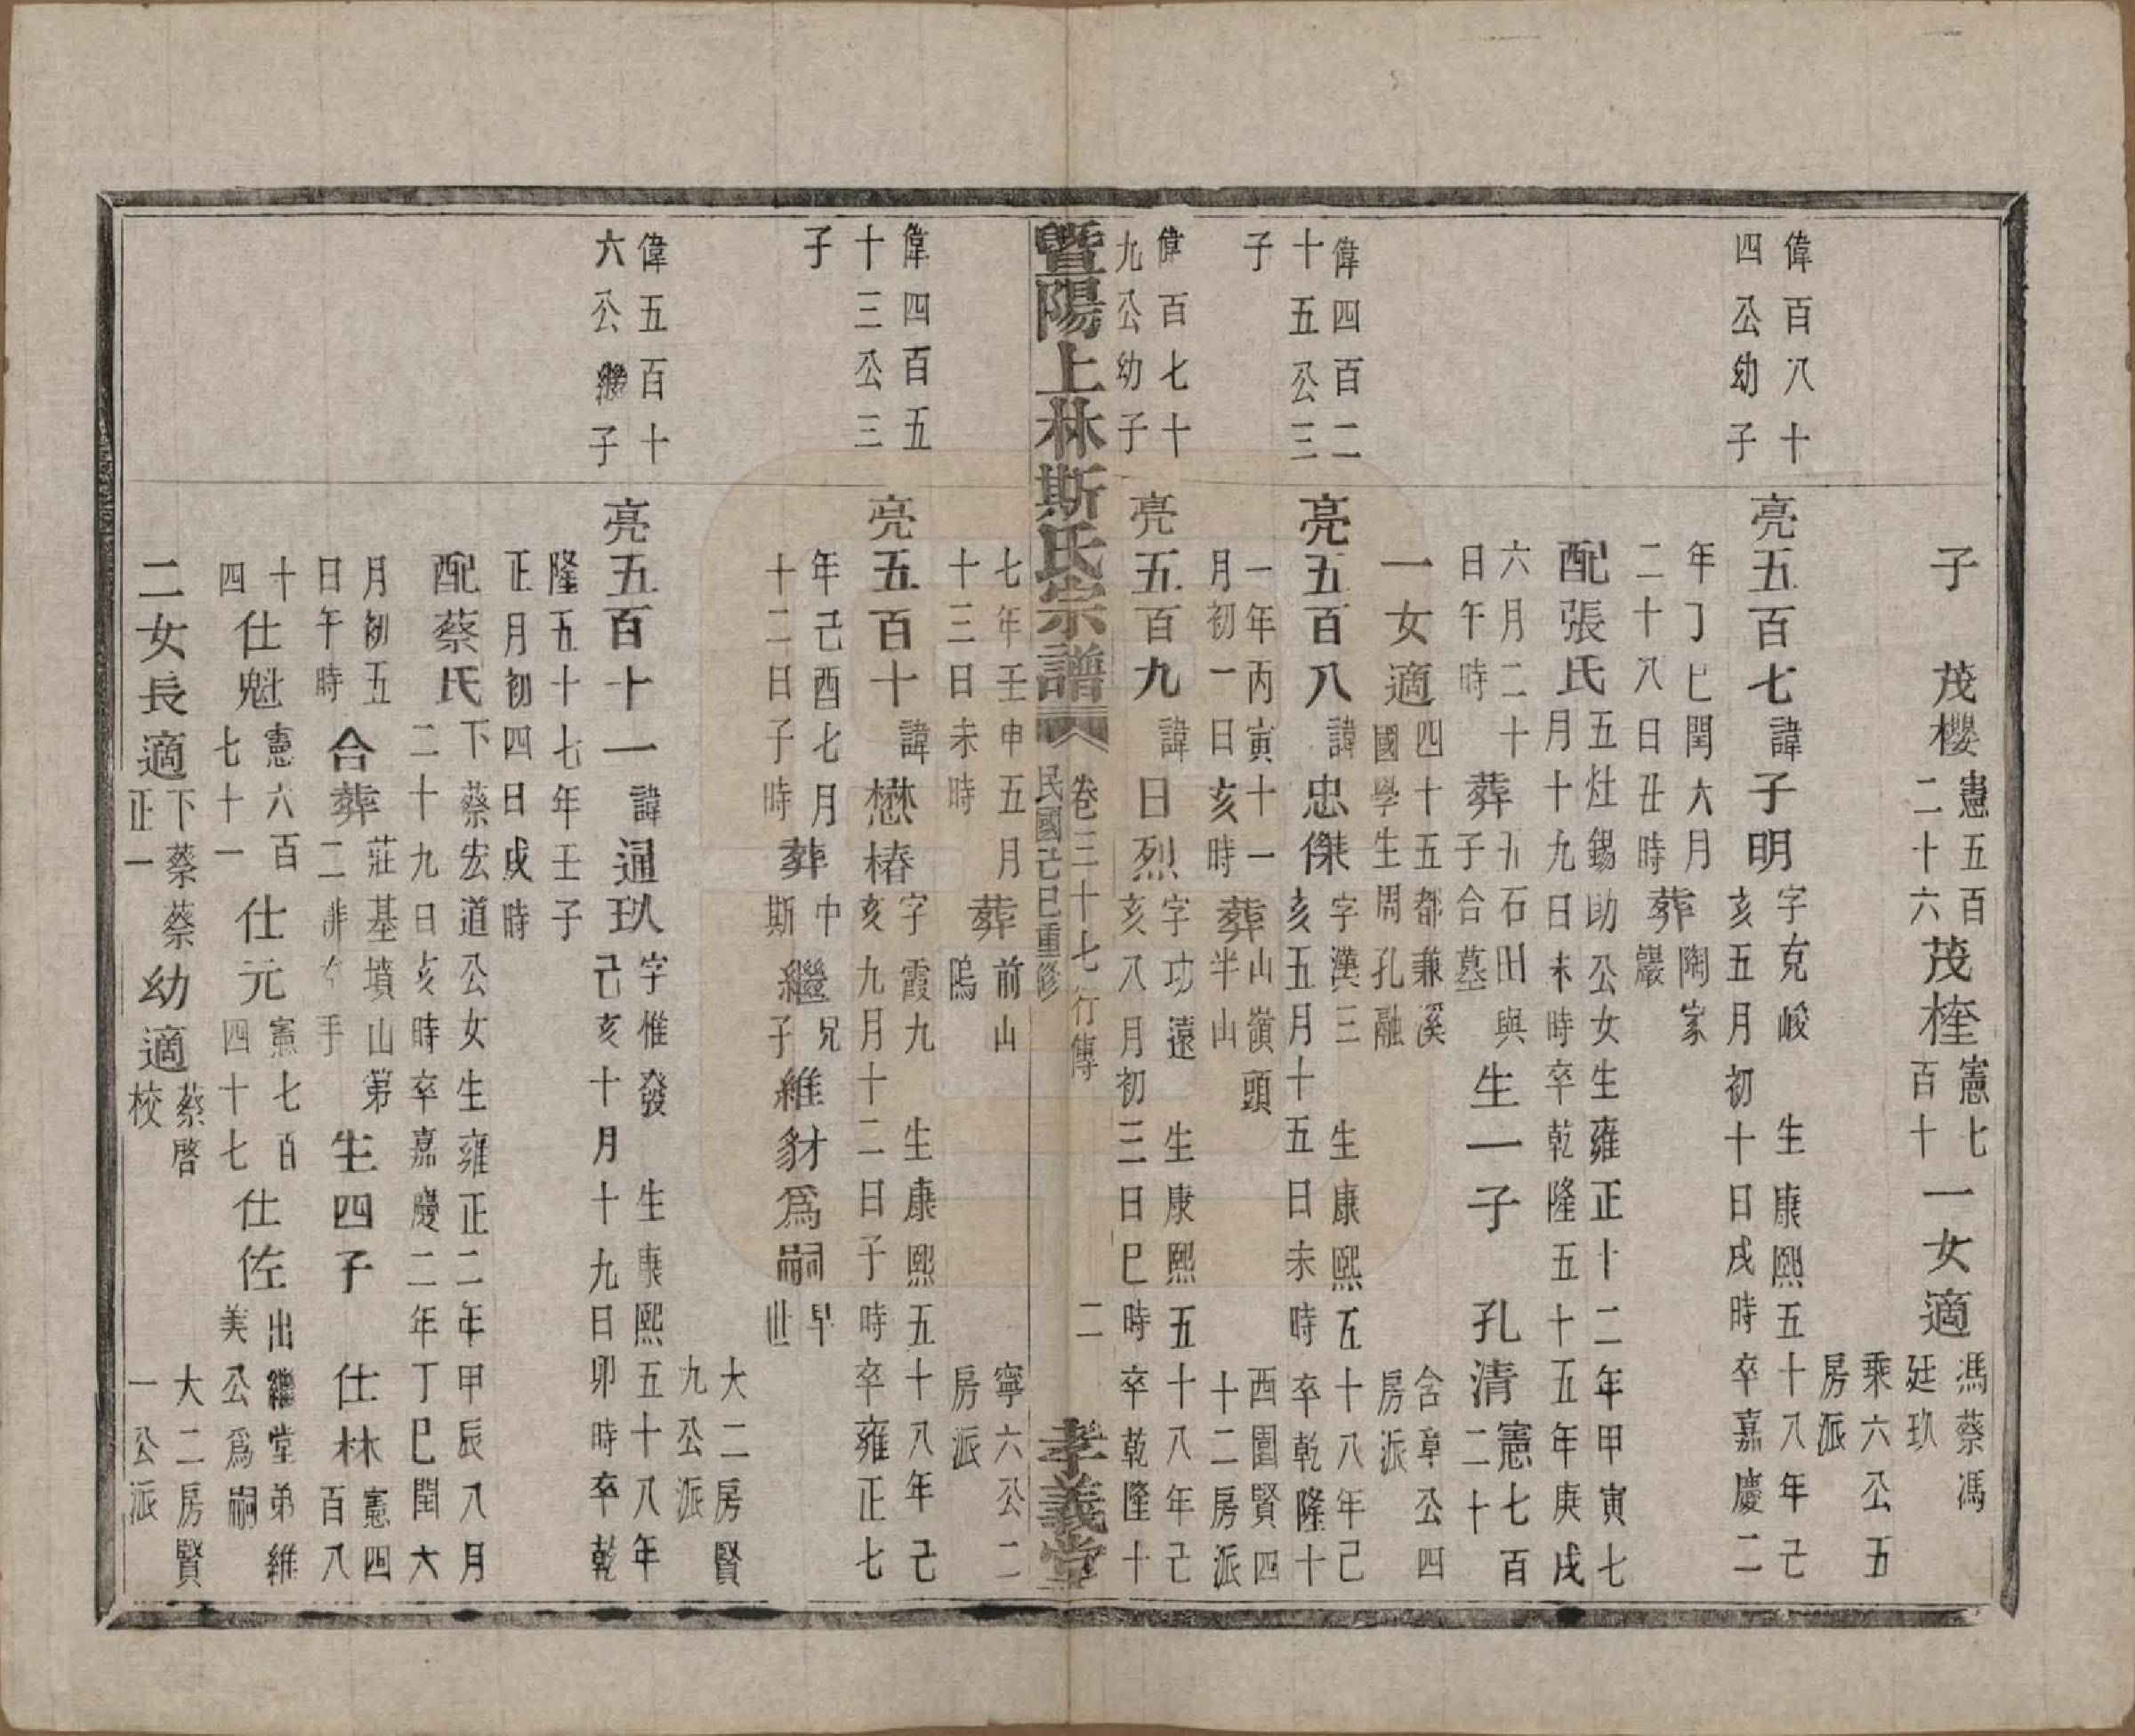 子　茂櫻憲五百二十六茂桎憲七百十一女適馮蔡馮廷玖
乘六公五房派
偉百八十四公幼子
亮五百七諱子明字克峻生康熙五十八年己亥五月初十日戌時卒嘉慶二
年丁巳閏六月二十八日丑時葬陶家巖
配張氏五灶錫助公女生雍正十二年甲寅七月十九日未時卒乾隆五十五年庚戌
六月二十日午時葬石田與子合墓生一子　孔清憲七百二十
一女適四十五都兼溪國學生周孔融
含章公四房派
偉四百二十五公三子
亮五百八諱忠傑字漢三生康熙五十八年己亥五月十五日未時卒乾隆十
一年丙寅十一月初一日亥時葬山嶺頭半山
西園賢四十二房派
偉百七十九公幼子
亮五百九諱日烈字功遠生康熙五十八年己亥八月初三日巳時卒乾隆十
暨陽上林斯氏宗譜
卷三十七行傳　二
民國己巳重修
孝義堂
七年壬申五月十三日未時葬前山塢
寧六公二房派
偉四百五十三公三子
亮五百十諱懋椿字霞九生康熙五十八年己亥九月十二日子時卒雍正七
年己酉七月十二日子時葬中斯繼兄子維豺爲嗣早世
大二房賢九公派
偉五百十六公繼子
亮五百十一諱通玖字惟發生康熙五十八年己亥十月十九日卯時卒乾
隆五十七年壬子正月初四日戌時
配蔡氏下蔡宏道公女生雍正二年甲辰八月二十九日亥時卒嘉慶二年丁巳閏六
月初五日午時合葬莊基墳山第二手生四子　仕林憲四百八
十四仕魁憲六百七十一仕元憲七百四十七仕佐出繼堂弟維美公爲嗣
二女長適下蔡蔡正一幼適蔡啓校
大二房賢一公派